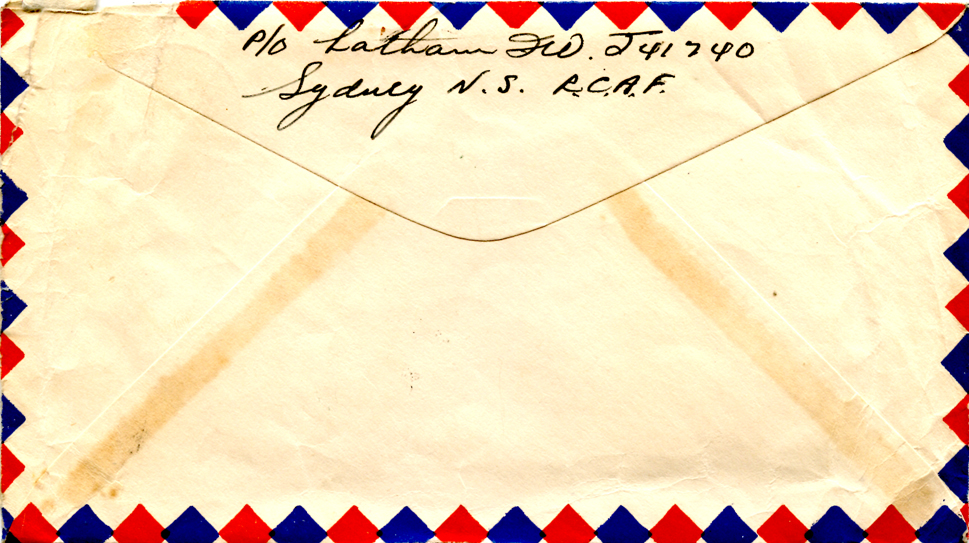 P/O Latham FW. J41740
Sydney N.S. R.C.A.F.